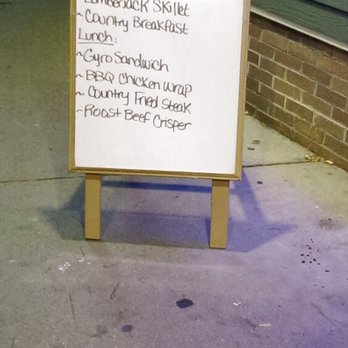 Lumberjack Skillet
~Country Breakfast
Lunch:
~Gyro Sandwich
~BBQ Chicken Wrap
~Country Fried Steak
~Roast Beef Crisper